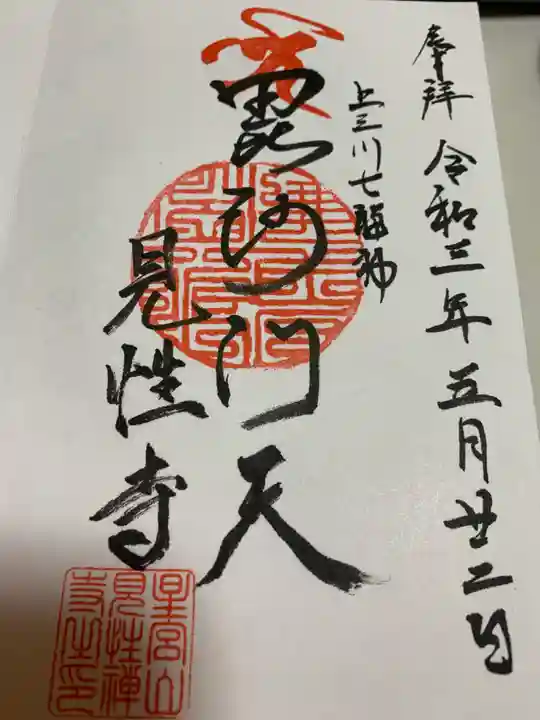 奉拝 令和三年五月廿二日
上三川七福神
毘沙門天
見性寺
星宮山
見性禅
寺之印